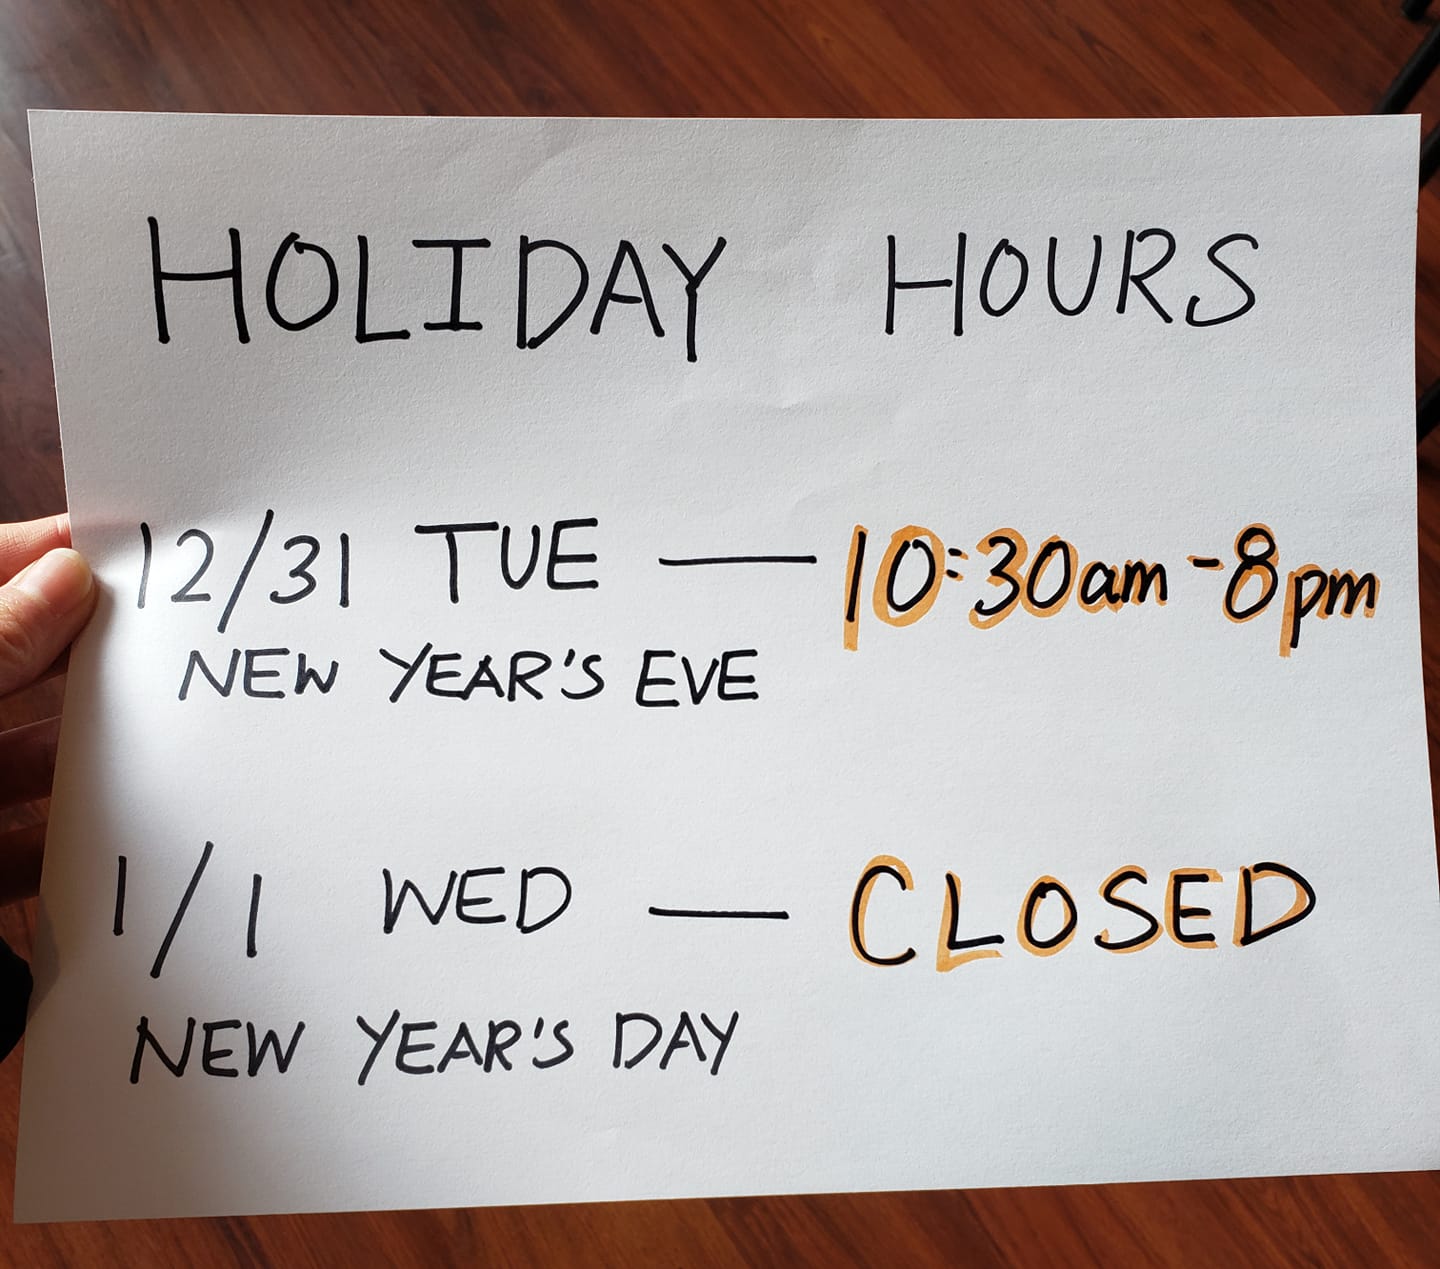 HOLIDAY HOURS
12/31 TUE — 10:30am - 8pm
NEW YEAR'S EVE
1/1 WED — CLOSED
NEW YEAR'S DAY